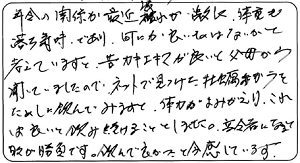 年令の関係か最近疲れが激しく、体重も
落ち気味であり、何にか良いものはないかと
考えていますと、昔カキエキスが良いと父母から
聞いていましたので、ネットで見つけた牡蠣エキスを
ためしに飲んでみますと、体力がよみがえり、これ
は良いと飲み続けることとしました。高令者になると
が勝負です。飲んで良かったと今感じています。